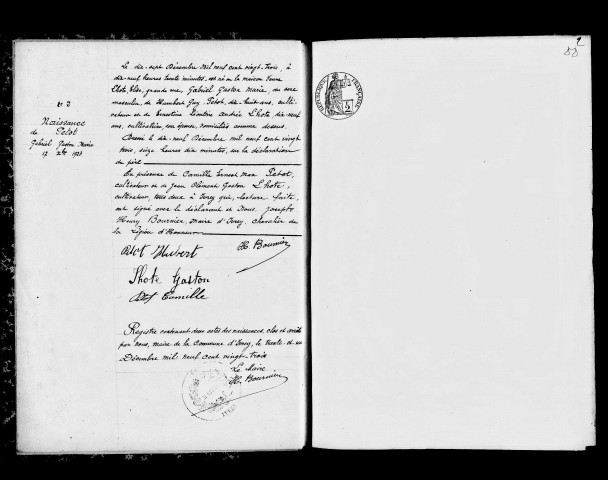 N° 2
Naissance
de Petot
Gabriel Gaston Marie
17 Xbre 1923
Le dix-sept Décembre mil neuf cent vingt-trois, à
dix-neuf heures trente minutes est né en la maison
Lhote, grande rue, Gabriel Gaston Marie, du sexe
masculin, de Humbert Guy Petot, dix-huit ans, culti-
vateur et de Ernestine Léontine Andrée Lhote, dix-neuf
ans, cultivatrice, son épouse, domiciliés comme dessus.
Dressé le dix-neuf Décembre mil neuf cent vingt
trois, seize heures dix minutes, sur la déclaration
du père
En présence de Camille Ernest Petot,
cultivateur et de Jean Clément Gaston Lhote,
cultivateur, tous deux à Ivrey qui, lecture faite,
ont signé avec le déclarant et Nous, Joseph
Henry Bournier, Maire d'Ivrey, chevalier de
la Légion d'Honneur
Petot Hubert
H. Bournier
Lhote Gaston
Petot Camille
Registre contenant deux actes des naissances, clos et arrêté
par nous, maire de la Commune d'Ivrey, le trente et un
Décembre mil neuf cent vingt-trois
Le Maire
H. Bournier
2
RÉPUBLIQUE FRANÇAISE